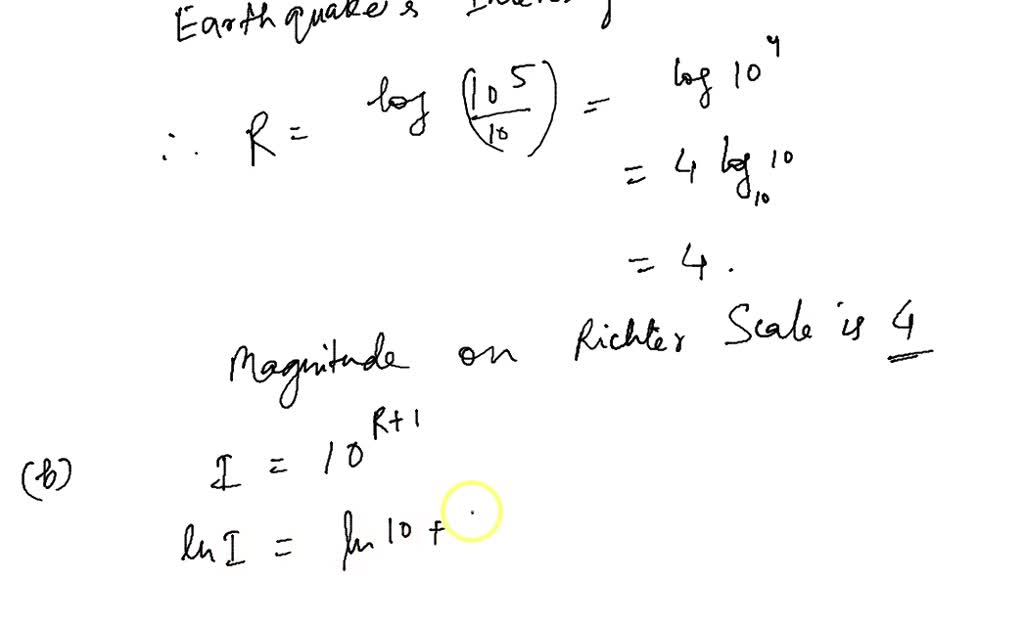 Earthquake's
∴ R = log (10^5/10) = log 10^4
= 4 log_10 10
= 4.
Magnitude on Richter Scale is 4
(b) I = 10^(R+1)
ln I = ln 10 +